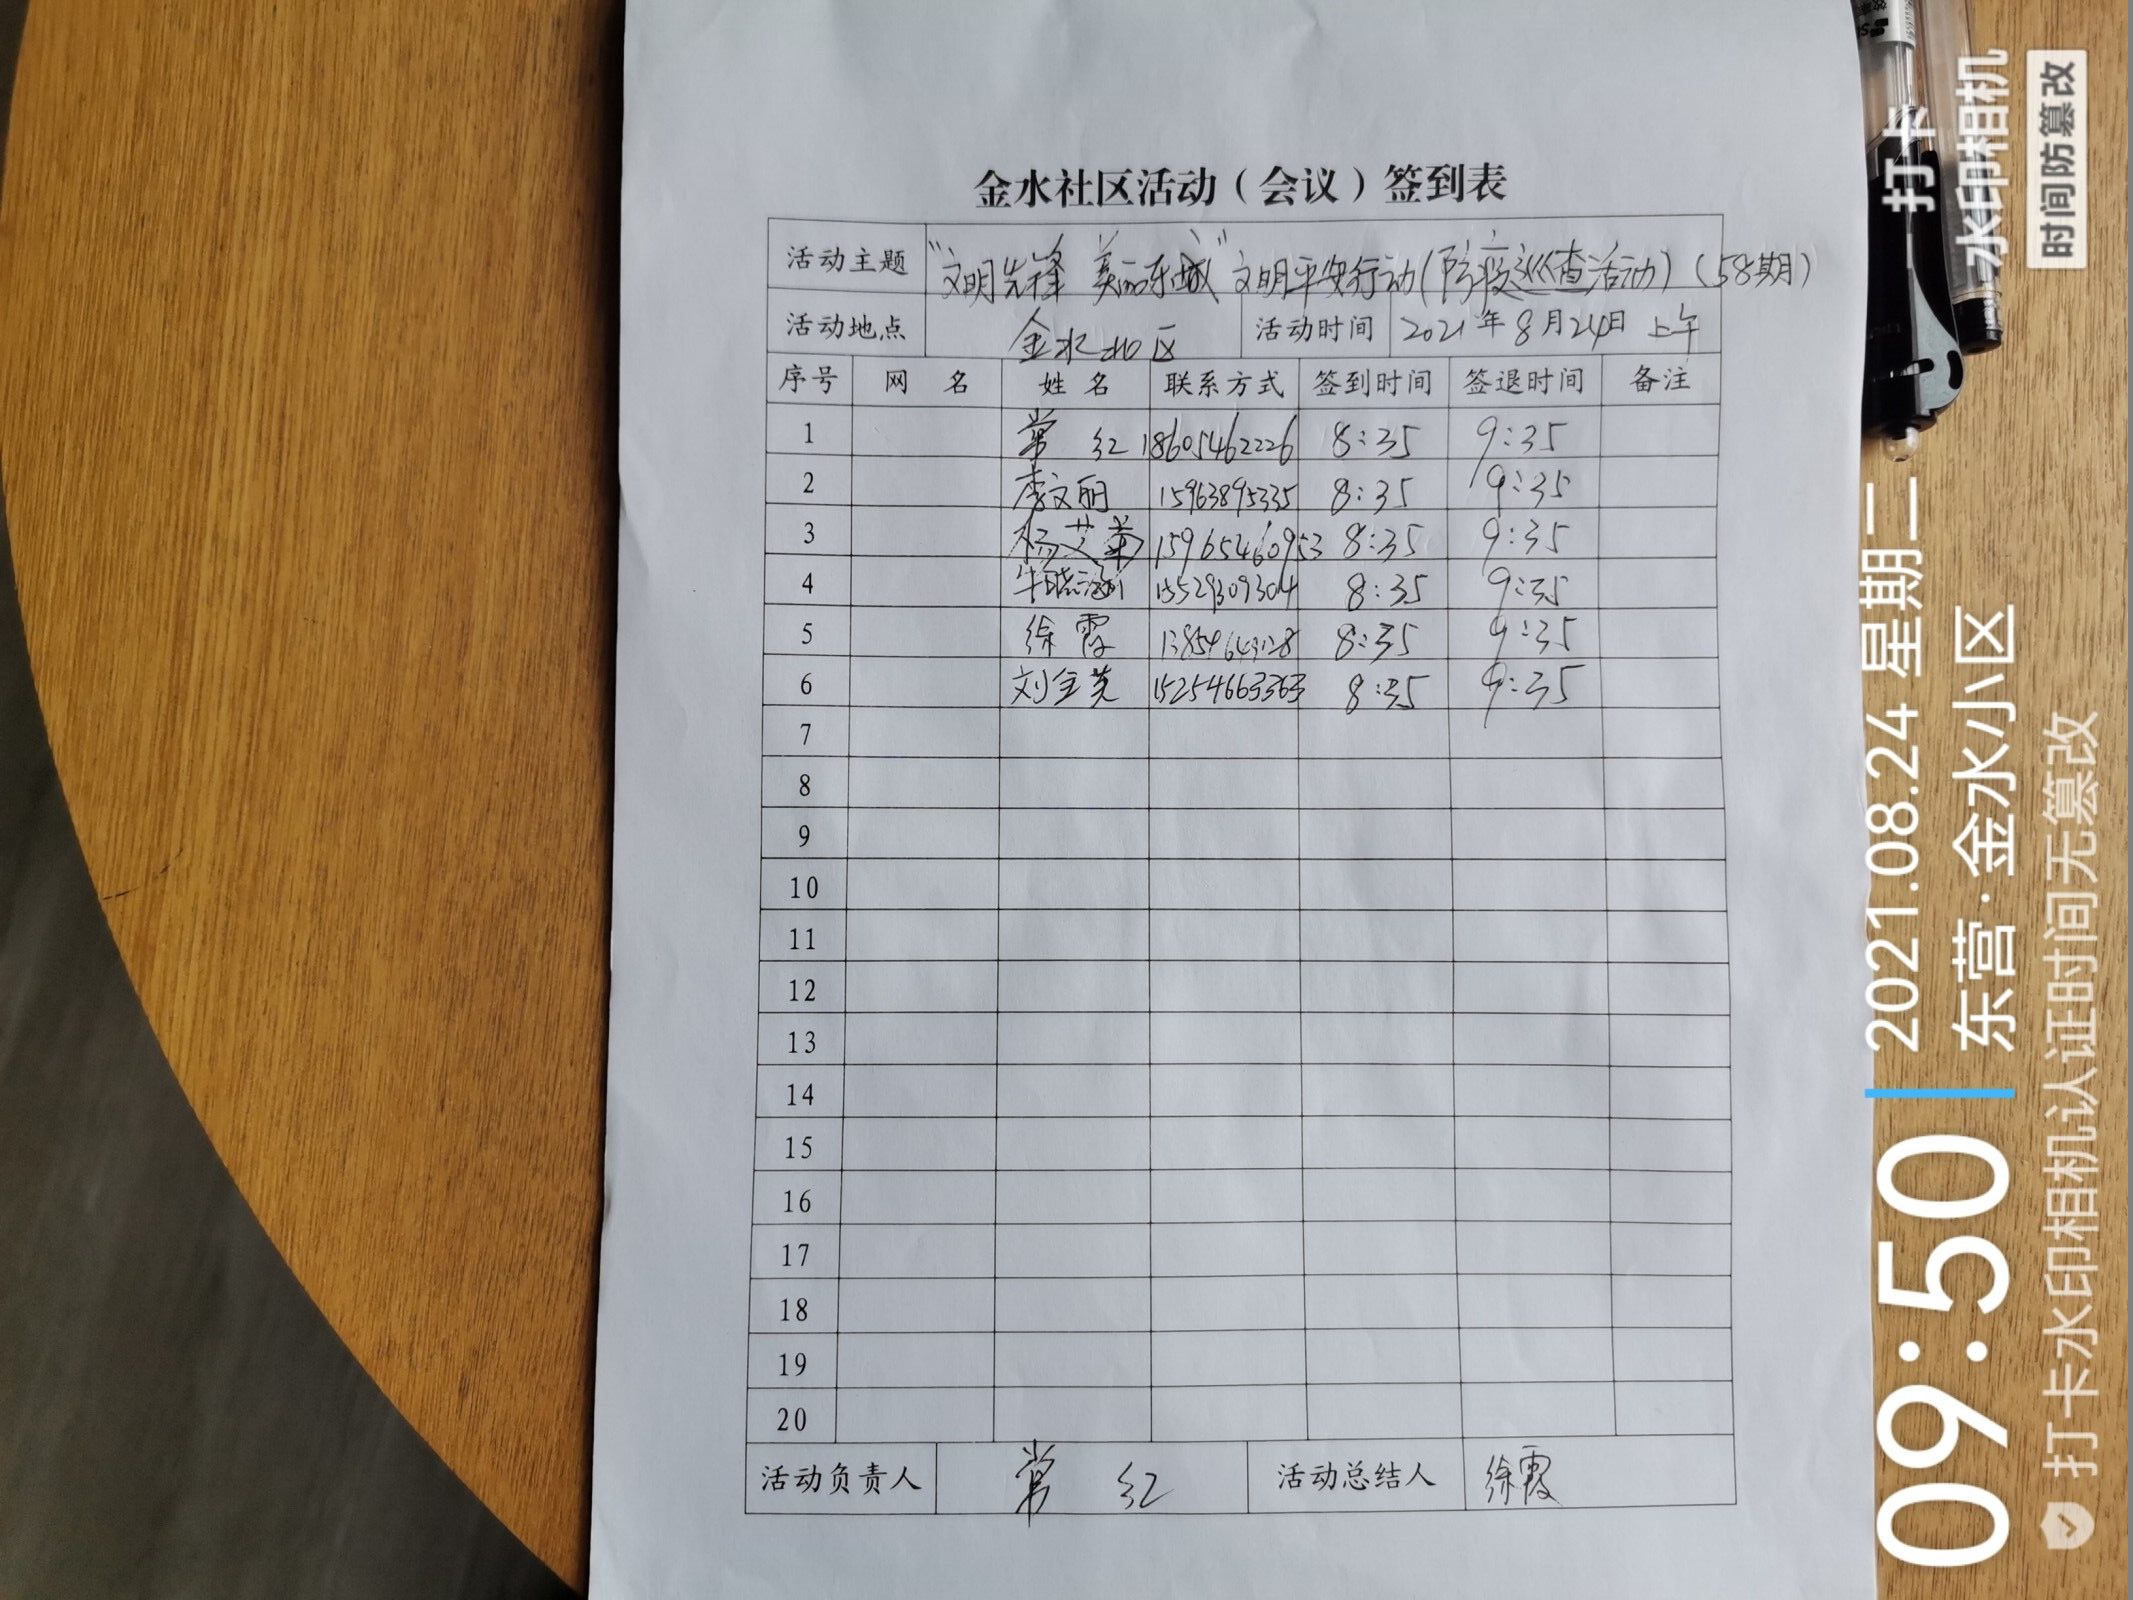 金水社区活动（会议）签到表
活动主题 "文明先锋 美丽东城" 文明平安行动（防疫巡查活动）（58期）
活动地点 金水社区 活动时间 2021年8月24日 上午
序号 网 名 姓 名 联系方式 签到时间 签退时间 备注
1 常 红 18605462226 8:35 9:35
2 李文丽 15963895335 8:35 9:35
3 杨艾菊 15965460953 8:35 9:35
4 牛晓 8:35 9:35
5 徐霞 8:35 9:35
6 刘金芝 15254663363 8:35 9:35
7
8
9
10
11
12
13
14
15
16
17
18
19
20
活动负责人 常 红 活动总结人 徐霞
09:50
2021.08.24 星期二
东营·金水小区
打卡水印相机认证时间无篡改
打卡
水印相机
时间防篡改